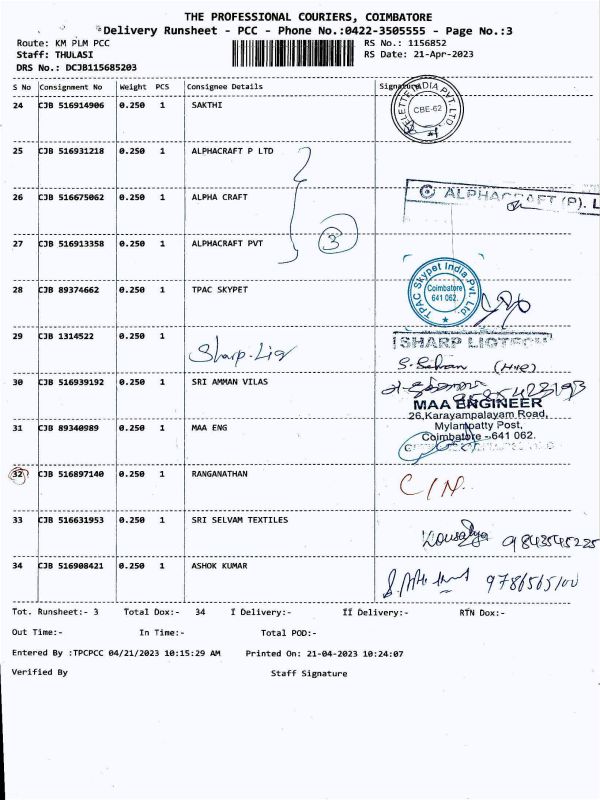 THE PROFESSIONAL COURIERS, COIMBATORE
Delivery Runsheet - PCC - Phone No.:0422-3505555 - Page No.:3
Route: KM PLM PCC RS No.: 1156852
Staff: THULASI RS Date: 21-Apr-2023
DRS No.: DCJB115685203
S No Consignment No Weight PCS Consignee Details Signature
24 CJB 516914906 0.250 1 SAKTHI
INDIA PVT. LTD CBE-62
25 CJB 516931218 0.250 1 ALPHACRAFT P LTD
26 CJB 516675062 0.250 1 ALPHA CRAFT
ALPHACRAFT (P). L
27 CJB 516913358 0.250 1 ALPHACRAFT PVT
3
28 CJB 89374662 0.250 1 TPAC SKYPET
TPAC Skypet India Pvt. Ltd. Coimbatore 641 062.
29 CJB 1314522 0.250 1
Sharp-Lig
SHARP LIGTECH
S. Selvan (HR)
30 CJB 516939192 0.250 1 SRI AMMAN VILAS
31 CJB 89340989 0.250 1 MAA ENG
MAA ENGINEER
26,Karayampalayam Road,
Mylampatty Post,
Coimbatore - 641 062.
32 CJB 516897140 0.250 1 RANGANATHAN
C/N
33 CJB 516631953 0.250 1 SRI SELVAM TEXTILES
Kousalya 9843545225
34 CJB 516908421 0.250 1 ASHOK KUMAR
9786565100
Tot. Runsheet:- 3 Total Dox:- 34 I Delivery:- II Delivery:- RTN Dox:-
Out Time:- In Time:- Total POD:-
Entered By :TPCPCC 04/21/2023 10:15:29 AM Printed On: 21-04-2023 10:24:07
Verified By Staff Signature